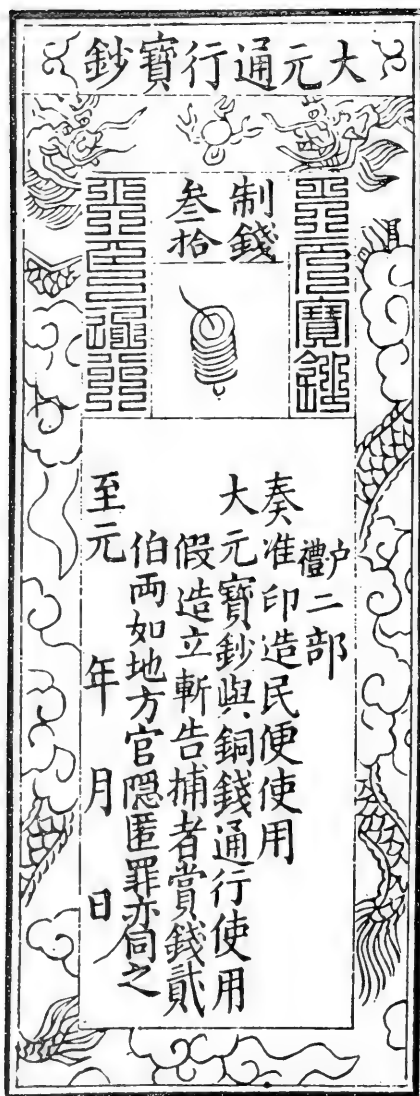 大元通行寶鈔
制錢
叁拾
户禮二部
奏准印造民便使用
大元寶鈔與銅錢通行使用
假造立斬告捕者賞錢貳
伯両如地方官隱匿罪亦同之
至元　年　月　日